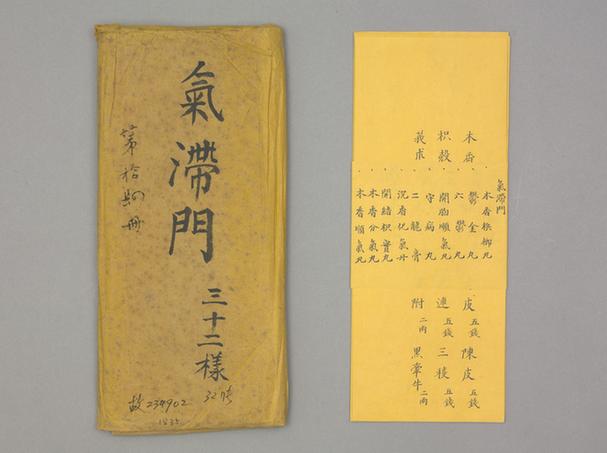 氣滯門
三十二樣
第拾冊
故234902
32
木香
枳殼
莪朮
氣滯門
木香檳榔丸
鬱金丸
六鬱丸
開胸順氣丸
守病丸
二龍膏
沉香化氣丹
開結枳實丸
木香分氣丸
木香順氣丸
皮五錢 陳皮五錢
連五錢 三稜五錢
附二兩 黑牽牛二兩